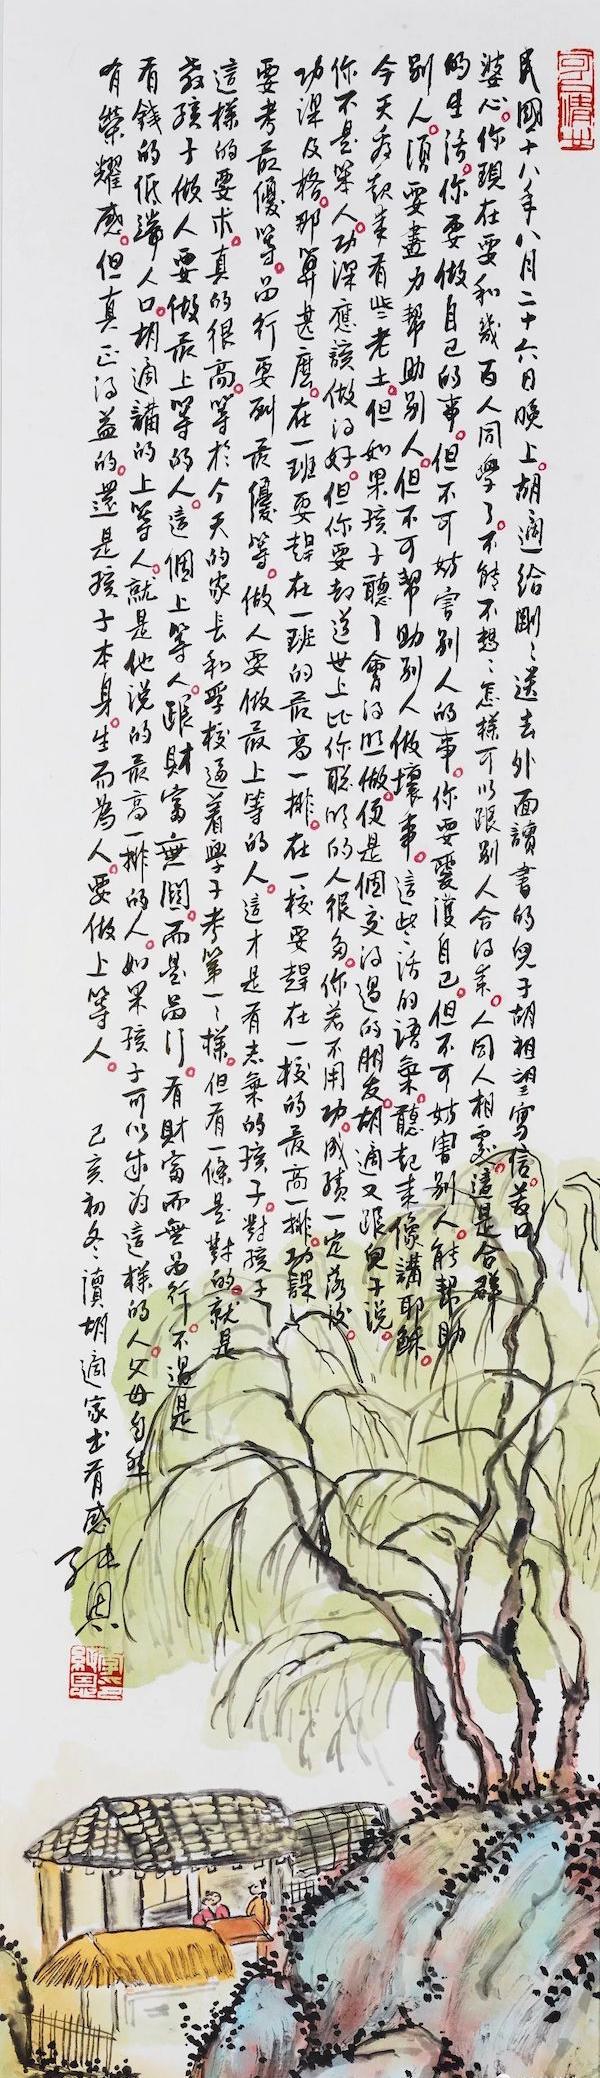 民國十八年八月二十六日晚上。胡適給剛剛送去外面讀書的兒子胡祖望寫信。苦口
婆心。你現在要和幾百人同學了。不能不想想怎樣可以跟別人合得來。人同人相處。這是合群
的生活。你要做自己的事。但不可妨害別人的事。你要愛護自己。但不可妨害別人。能幫助
別人。須要盡力幫助別人。但不可幫助別人做壞事。這些話的語氣。聽起來像講耶穌。
今天看起來有些老土。但如果孩子聽了會得照做。便是個交得過的朋友。胡適又跟兒子說。
你不是笨人。功課應該做得好。但你要知道世上比你聪明的人很多。你若不用功。成績一定落後。
功課及格。那算甚麼。在一班要趕在一班的最高一排。在一校要趕在一校的最高一排。功課
要考最優等。品行要列最優等。做人要做最上等的人。這才是有志氣的孩子。對孩子
這樣的要求。真的很高。等於今天的家長和學校逼着學子考第一一樣。但有一條是對的。就是
教孩子做人要做最上等的人。這個上等人。跟財富無關。而是品行。有財富而無品行。不過是
有錢的低端人口。胡適講的上等人。就是他說的最高一排的人。如果孩子可以成為這樣的人。父母自然
有榮耀感。但真正得益的。還是孩子本身。生而為人。要做上等人。
己亥初冬讀胡適家書有感
純恩